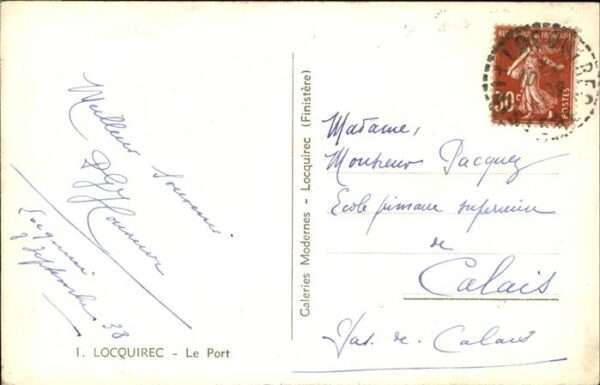 Meilleur souvenir
Locquirec
9 septembre 38
1. LOCQUIREC - Le Port
Galeries Modernes - Locquirec (Finistère)
30c
POSTES
Madame,
Monsieur Pacquez
Ecole primaire supérieure
de
Calais
Pas-de-Calais